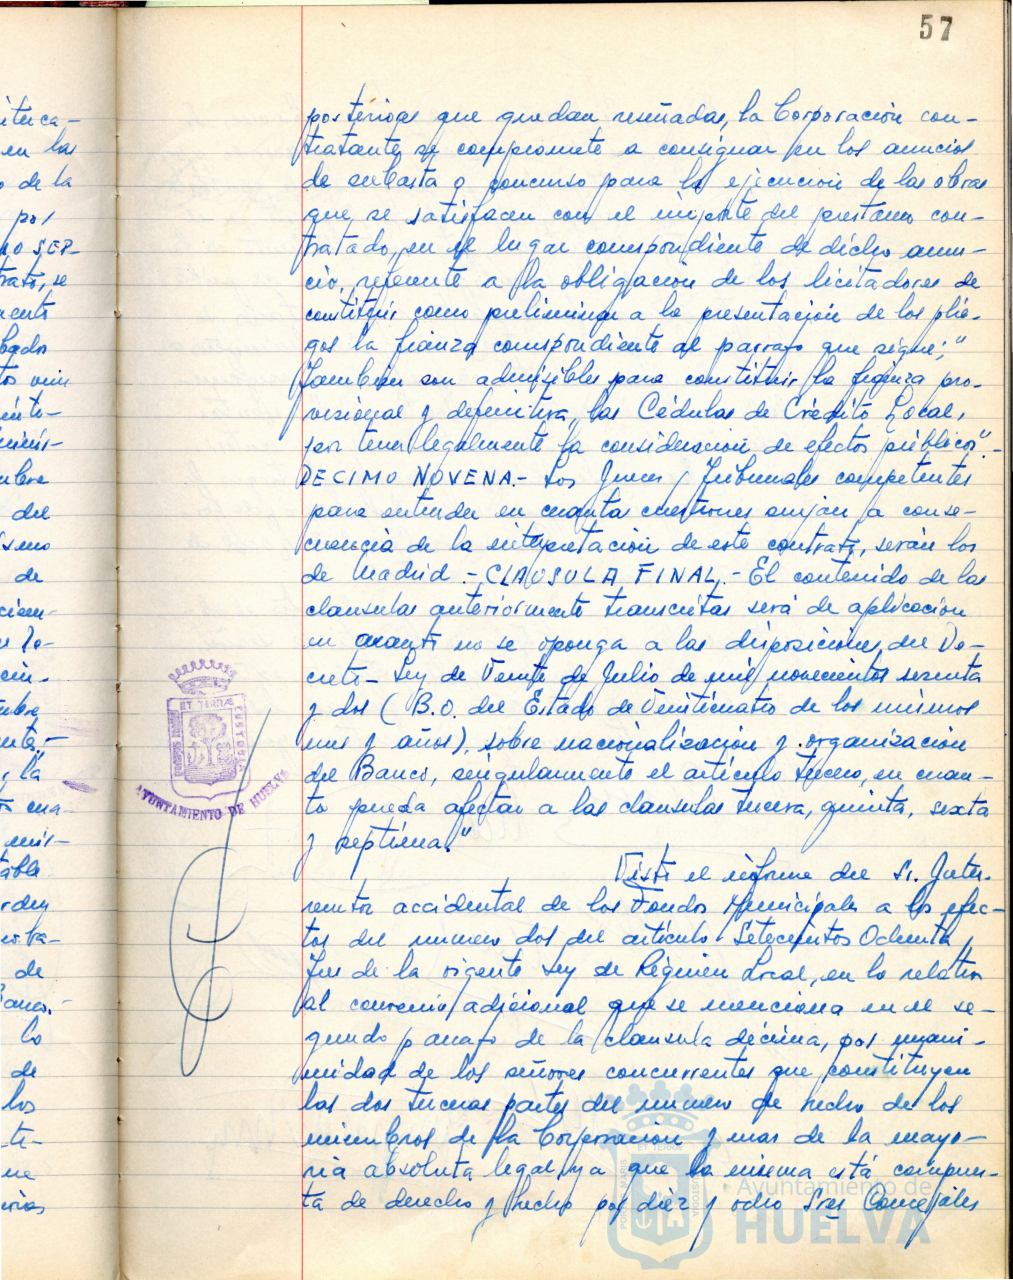 57
posteriores que quedan reseñadas, la Corporación con-
tratante, se compromete a consignar en los anuncios
de subasta o concurso para la ejecución de las obras
que se satisfacen con el importe del prestamo con-
tratado, en el lugar correspondiente de dicho anun-
cio, referente a la obligación de los licitadores de
constituir como preliminar a la presentación de los plie-
gos la fianza correspondiente al parrafo que sigue; "
Tambien son admisibles para constituir la fianza pro-
visional y definitiva, las Cédulas de Crédito Local,
por tener legalmente la consideración de efectos públicos".-
DECIMO NOVENA.- Los Jueces y Tribunales competentes
para entender en cuantas cuestiones surjan a conse-
cuencia de la interpretación de este contrato, serán los
de Madrid.- CLAUSULA FINAL.- El contenido de las
clausulas anteriormente transcritas será de aplicación
en cuanto no se oponga a las disposiciones del De-
creto-Ley de Veinte de Julio de mil novecientos sesenta
y dos (B.O. del Estado de Veinticuatro de los mismos
mes y años), sobre nacionalización y organización
del Banco, singularmente el artículo tercero, en cuan-
to pueda afectar a las clausulas tercera, quinta, sexta
y septima."
Visto el informe del Sr. Inter-
ventor accidental de los Fondos Municipales a los efec-
tos del numero dos del artículo Setecientos Ochenta y
Tres de la vigente Ley de Régimen Local, en lo relativo
al convenio adicional que se menciona en el se-
gundo parrafo de la clausula décima, por unani-
midad de los señores concurrentes que constituyen
las dos terceras partes del numero de hecho de los
miembros de la Corporación y mas de la mayo-
ria absoluta legal, ya que la misma está compues-
ta de derecho y hecho por diez y ocho Sres Concejales
AYUNTAMIENTO DE HUELVA
Ayuntamiento de
HUELVA